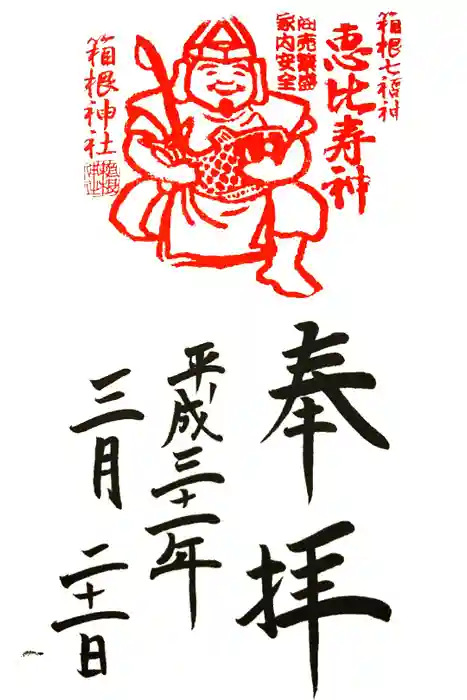 箱根七福神
恵比寿神
商売繁盛
家内安全
箱根神社
奉拝
平成三十一年
三月二十一日